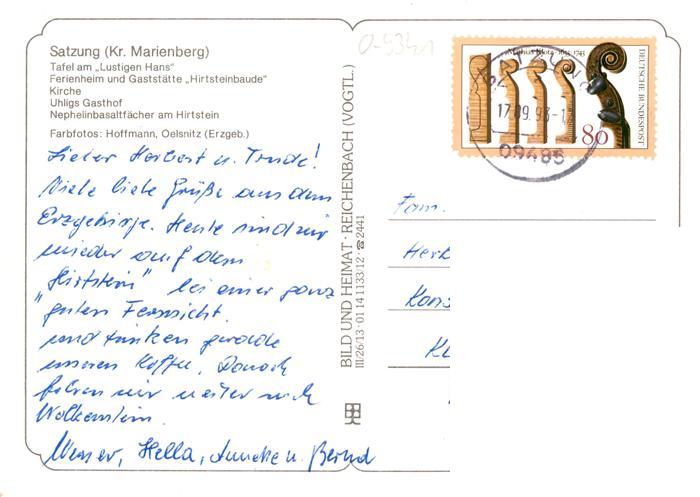 Satzung (Kr. Marienberg)
Tafel am „Lustigen Hans"
Ferienheim und Gaststätte „Hirtsteinbaude"
Kirche
Uhligs Gasthof
Nephelinbasaltfächer am Hirtstein
Farbfotos: Hoffmann, Oelsnitz (Erzgeb.)
Lieber Herbert u. Trude!
Viele liebe Grüße aus dem
Erzgebirge. Heute sind wir
wieder auf dem
„Hirtstein" bei einer ganz
guten Fernsicht
und trinken gerade
unseren Kaffee. Danach
fahren wir weiter nach
Wolkenstein.
Werner, Hella, Anneke u. Bernd
BILD UND HEIMAT · REICHENBACH (VOGTL.)
III/26/13 · 01 14 1133/12 · ☎ 2441
0-9341
Klotz · 1653-1743
DEUTSCHE BUNDESPOST
80
SATZUNG
17.09.93-1
09485
Fam.
Herb
Kons
Kl